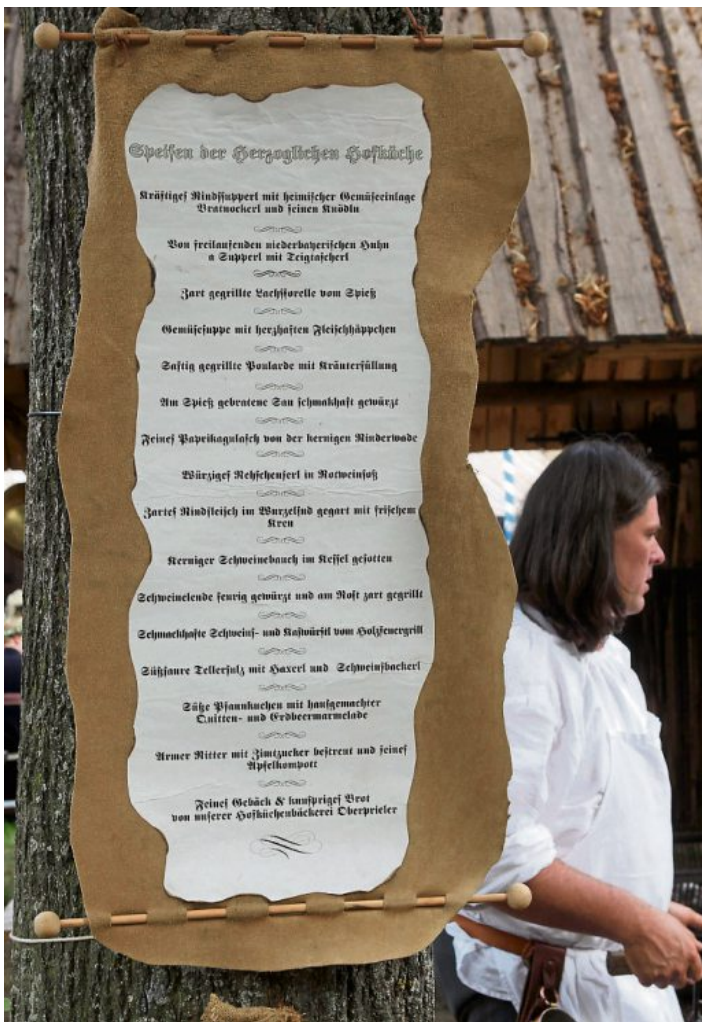 Speisen der Herzoglichen Hofküche
Kräftiges Rindssupperl mit heimischer Gemüseeinlage
Bratnockerl und feinen Knödln
Von freilaufenden niederbayerischen Huhn
a Supperl mit Teigtascherl
Zart gegrillte Lachsforelle vom Spieß
Gemüsesuppe mit herzhaften Fleischhäppchen
Saftig gegrillte Poularde mit Kräuterfüllung
Am Spieß gebratene Sau schmakhaft gewürzt
Feines Paprikagulasch von der kernigen Rinderwade
Würziges Rehschenkerl in Rotweinsoß
Zartes Rindfleisch im Wurzelsud gegart mit frischem
Kren
Kerniger Schweinebauch im Kessel gesotten
Schweinelende feurig gewürzt und am Rost zart gegrillt
Schmackhafte Schweins- und Kaswürstl vom Holzfeuergrill
Süßsaure Tellersulz mit Haxerl und Schweinsbackerl
Süße Pfannkuchen mit hausgemachter
Quitten- und Erdbeermarmelade
Armer Ritter mit Zimtzucker bestreut und feines
Apfelkompott
Feines Gebäck & knuspriges Brot
von unserer Hofküchenbäckerei Oberprieler